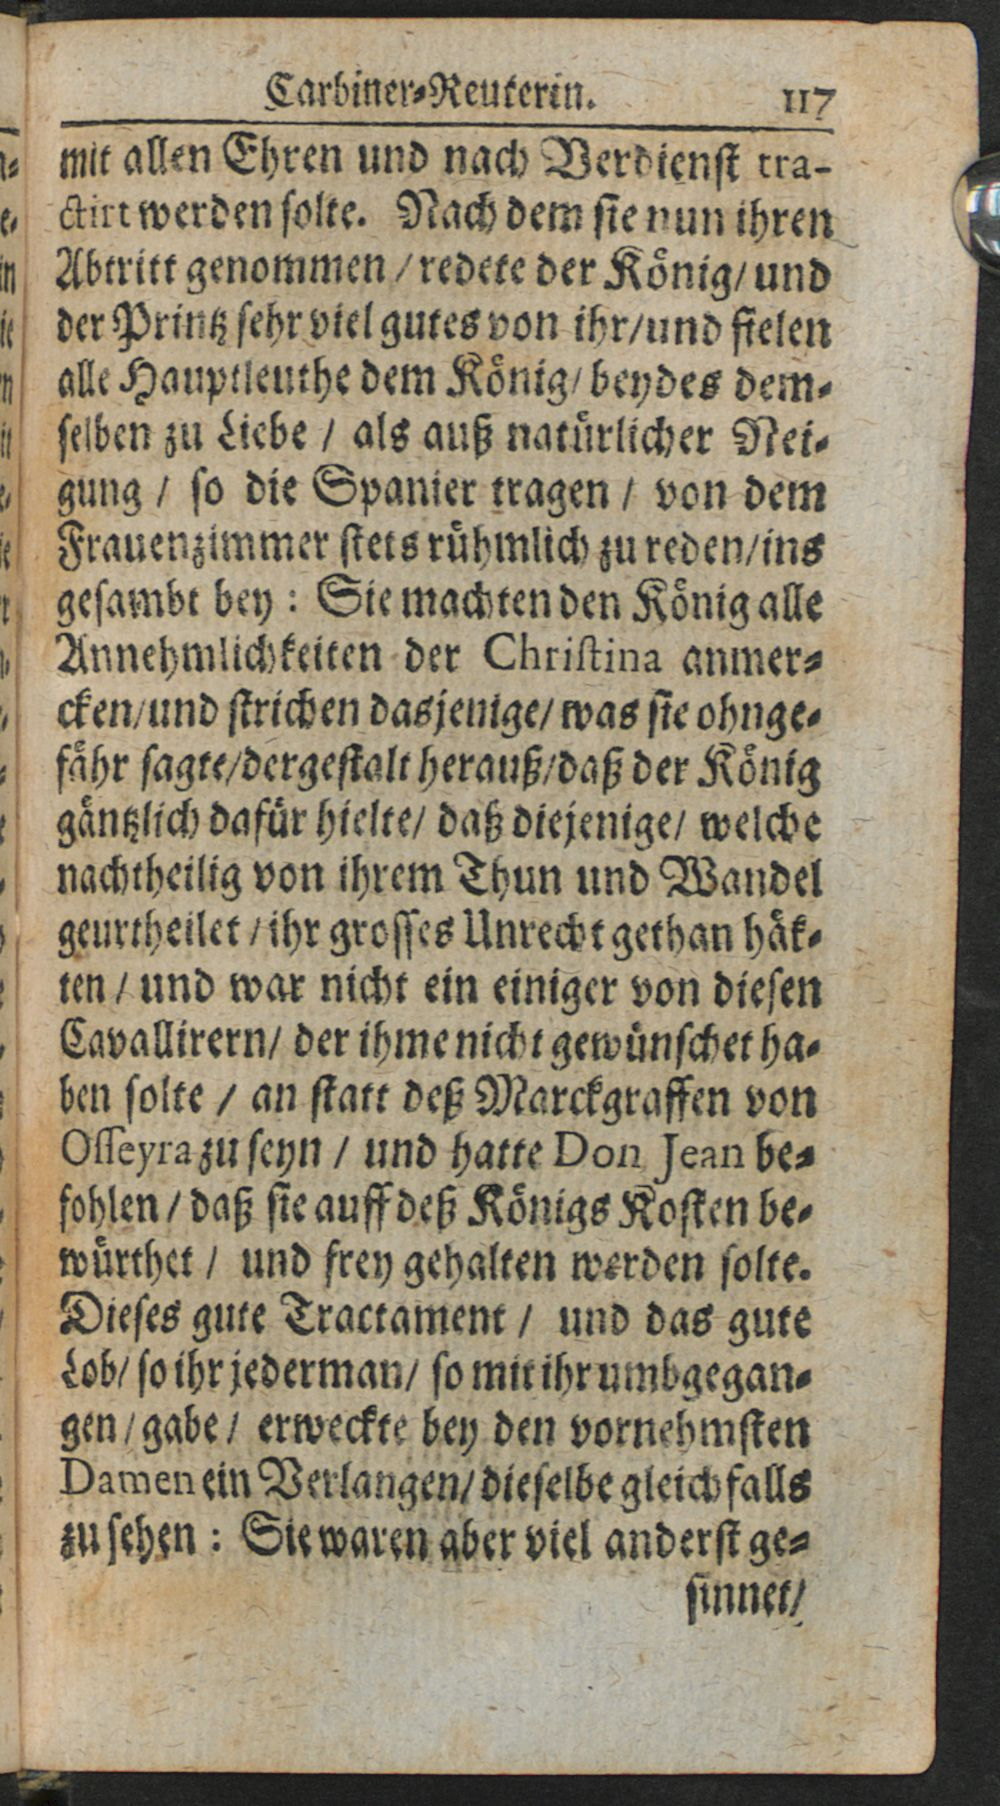 Carbiner-Reuterin. 117
mit allen Ehren und nach Verdienst tra-
ctirt werden solte. Nach dem sie nun ihren
Abtritt genommen / redete der König / und
der Printz sehr viel gutes von ihr / und fielen
alle Hauptleuthe dem König / beydes dem-
selben zu Liebe / als auß natürlicher Nei-
gung / so die Spanier tragen / von dem
Frauenzimmer stets rühmlich zu reden / ins
gesambt bey : Sie machten den König alle
Annehmlichkeiten der Christina anmer-
cken / und strichen dasjenige / was sie ohnge-
fähr sagte / dergestalt herauß / daß der König
gäntzlich dafür hielte / daß diejenige / welche
nachtheilig von ihrem Thun und Wandel
geurtheilet / ihr grosses Unrecht gethan hät-
ten / und war nicht ein einiger von diesen
Cavallirern / der ihme nicht gewünschet ha-
ben solte / an statt deß Marckgraffen von
Osseyra zu seyn / und hatte Don Jean be-
fohlen / daß sie auff deß Königs Kosten be-
würthet / und frey gehalten werden solte.
Dieses gute Tractament / und das gute
Lob / so ihr jederman / so mit ihr umbgegan-
gen / gabe / erweckte bey den vornehmsten
Damen ein Verlangen / dieselbe gleichfalls
zu sehen : Sie waren aber viel anderst ge-
sinnet /